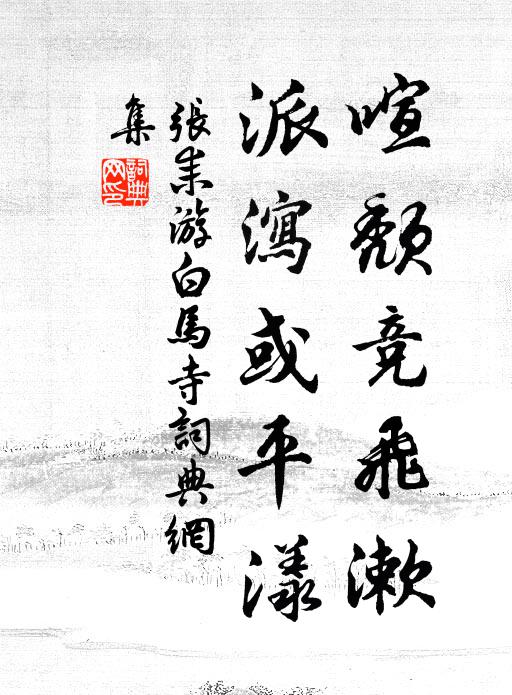 喧頹竞飛漱
派瀉或平漾
張耒游白馬寺詞典網
集
詞典
网印